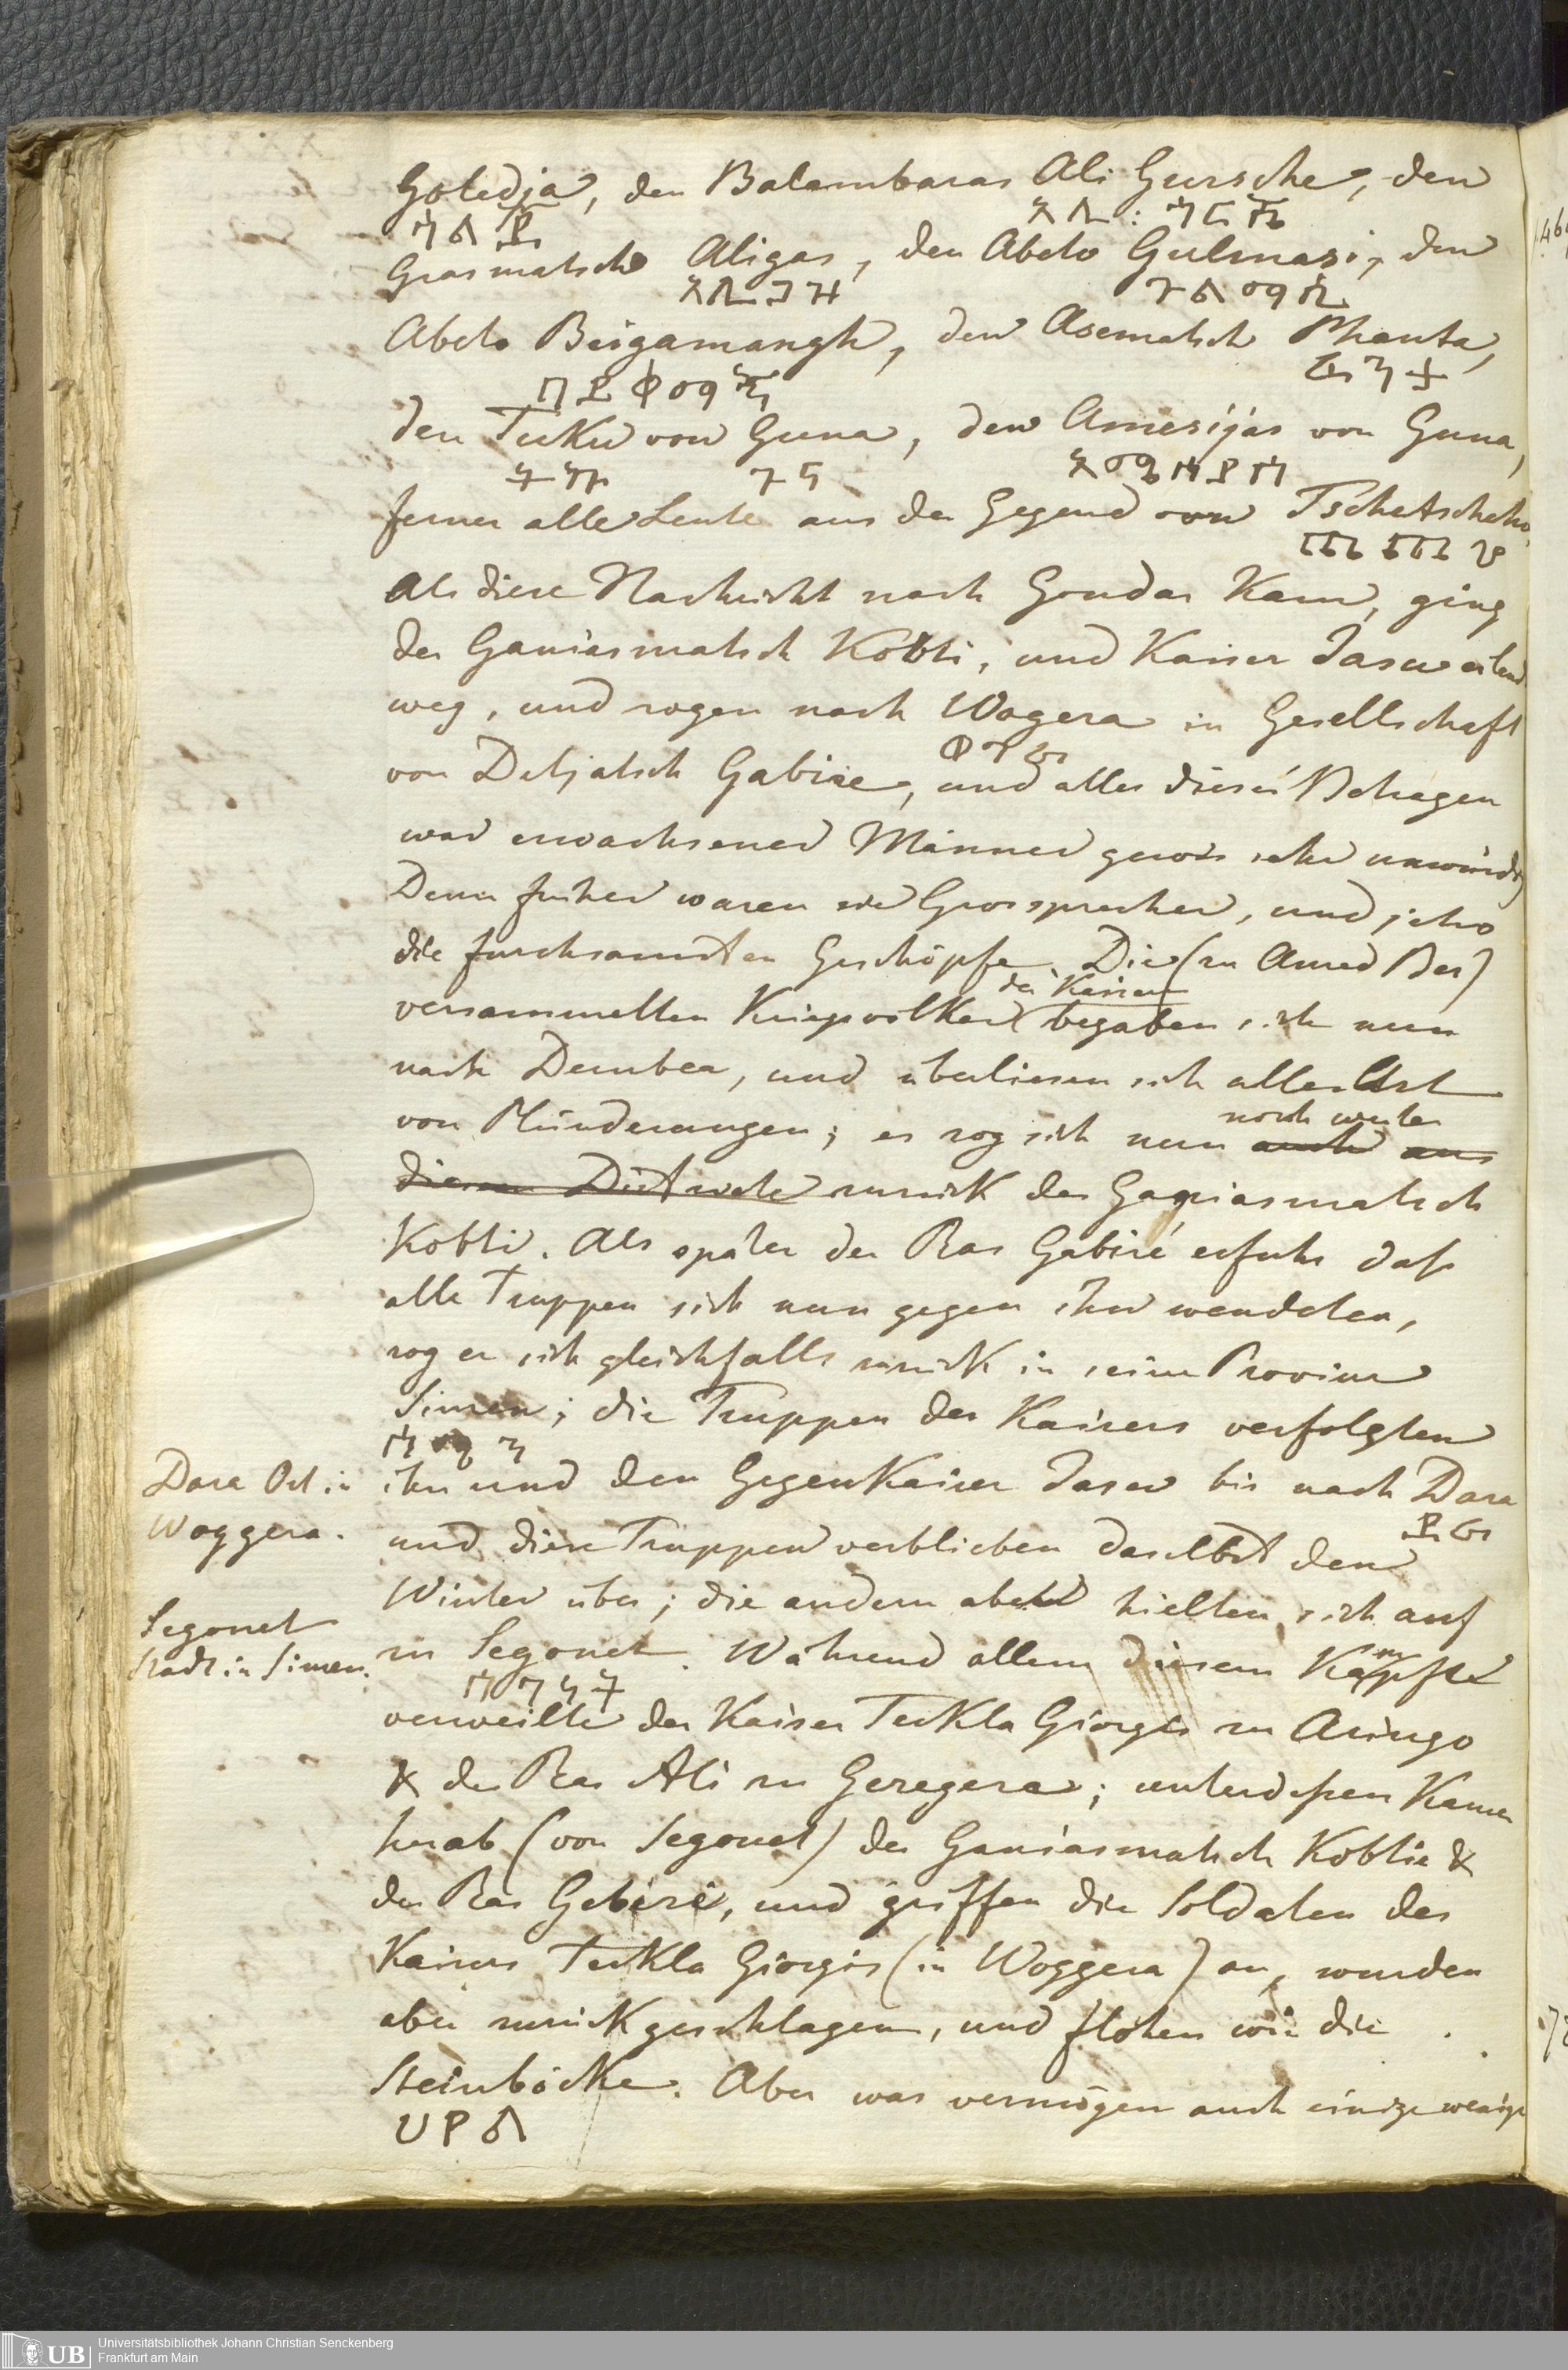 Goledja, den Balambaras Ali Gursche, den
Grasmatsch Aligas, den Abeto Gulmasi, den
Abeto Beigamangh, den Asematsch Phanta,
den Tuku von Guna, den Amesijas von Guna,
ferner alle Leute aus der Gegend von Tschetscheho,
Als diese Nachricht nach Gondar kam, ging
der Ganiasmatsch Kobti, und Kaiser Jasu eilend
weg, und zogen nach Wogera in Gesellschaft
ወገራ
von Detjatsch Gabire, und alles dieses Betragen
war erwachsener Männer gewis sehr unwürdig
Denn früher waren sie Grossprecher, und jetzo
die furchsamsten Geschöpfe. Die (zu Amed Ber)
des Kaisers
versammelten Kriegsvölker begaben sich nun
nach Dembea, und überliesen sich aller Art
noch weiter
von Plünderungen; es zog sich nun auch aus
diesem Districte zurück der Ganiasmatsch
Kobti. Als später der Ras Gabiré erfuhr daß
alle Truppen sich nun gegen ihn wendeten,
zog er sich gleichfalls zurück in seine Provinz
Simen; die Truppen des Kaisers verfolgten
ሰሜን
Dara Ort in
Woggera.
ihn und den Gegenkaiser Jasu bis nach Dara
ዳራ
und diese Truppen verblieben daselbst den
Winter über; die andern aber hielten sich auf
Segonet
Stadt in Simen.
zu Segonet. Während allem diesem Kampfe
ሰገነት
verweilte der Kaiser Teckla Giorgis zu Aringo
& der Ras Ali zu Geregera; unterdessen kamen
herab (von Segonet) der Ganiasmatsch Kobtie &
der Ras Gebiré, und griffen die Soldaten des
Kaisers Teckla Giorgis (in Woggera) an, wurden
aber zurückgeschlagen, und flohen wie die
Steinböcke. Aber was vermögen auch einige wenige
ሀየል
Universitätsbibliothek Johann Christian Senckenberg
UB
Frankfurt am Main